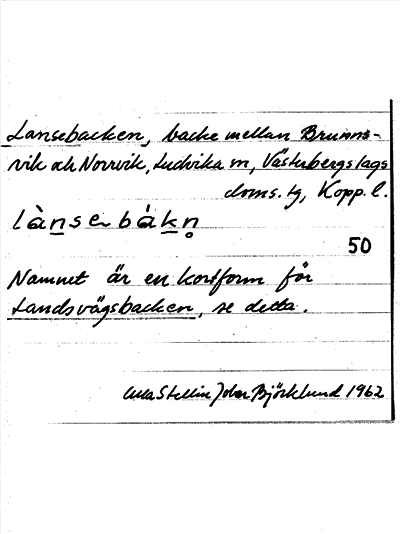 Lansebacken, backe mellan Brunns-
vik och Norrvik, Ludvika sn, Västerbergslags
doms. tg, Kopp. l.
lànsebàkn̥
50
Namnet är en kortform för
Landsvägsbacken, se detta.
Ulla Stellin Joler Björklund 1962